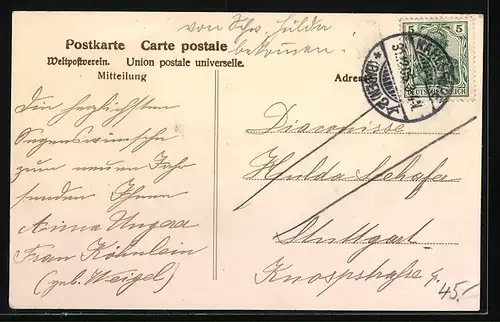 von Schw. Hulda
bekommen.
Postkarte Carte postale
Weltpostverein. Union postale universelle.
Mitteilung
Adresse
5 5
DEUTSCHES REICH
(BADEN)
Die herzlichsten
Segenswünsche
zum neuen Jahr
senden Ihnen
Anna Ungera
Frau Köhnlein
(geb. Weigel)
Diaconisse
Hulda Schäfer
Stuttgart
Knospstraße 9.
45.